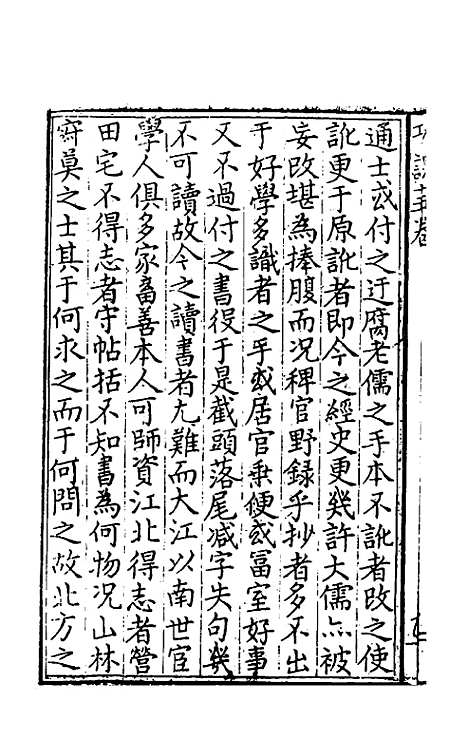 通士或付之迂腐老儒之手本不訛者改之使
訛更于原訛者即今之經史更幾許大儒亦被
妄改堪為捧腹而况稗官野録乎抄者多不出
于好學多識者之手或居官乗便或冨室好事
又不過付之書役于是截頭落尾减字失句幾
不可讀故今之讀書者尤難而大江以南世宦
學人俱多家畜善本人可師資江北得志者營
田宅不得志者守帖括不知書為何物况山林
寂莫之士其于何求之而于何問之故北方之